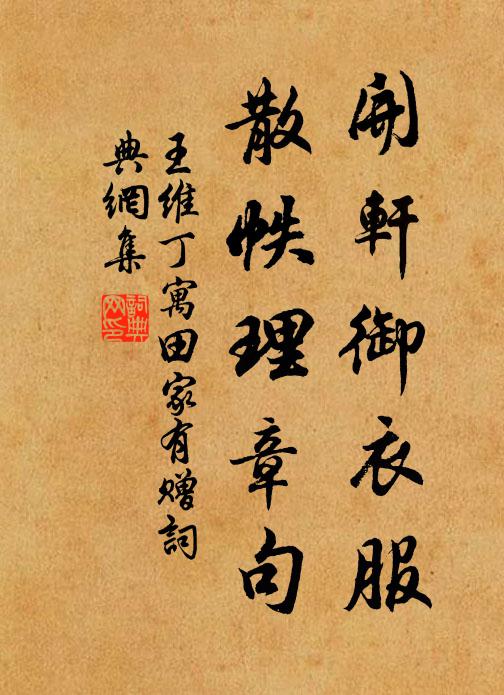 開軒御衣服
散帙理章句
王維丁寓田家有贈詞
典網集
詞典
网印